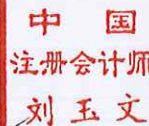 中国
注册会计师
刘玉文